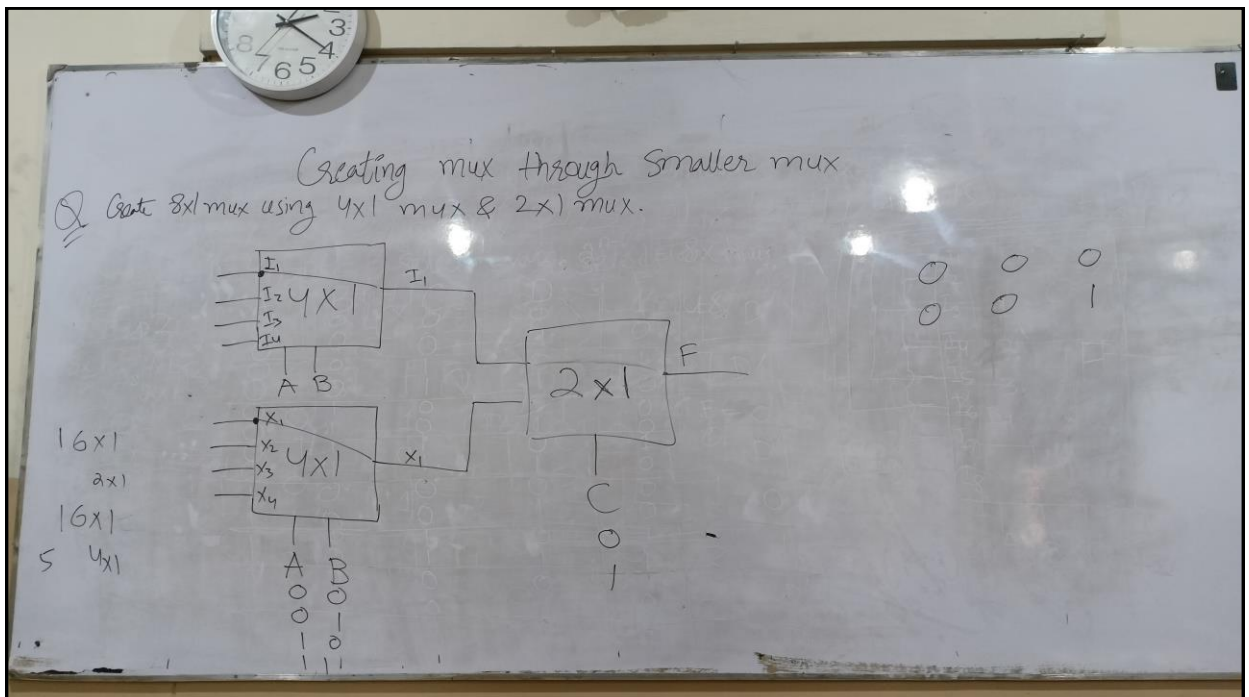 3
8 4
7 6 5
Creating mux through smaller mux
Q Create 8x1 mux using 4x1 mux & 2x1 mux.
I1
I2
I3
I4
4x1
I1
A B
X1
X2
X3
X4
4x1
X1
A B
0 0
0 1
1 0
1 1
2x1
F
C
0
1
0 0 0
0 0 1
16x1
2x1
16x1
5 4x1